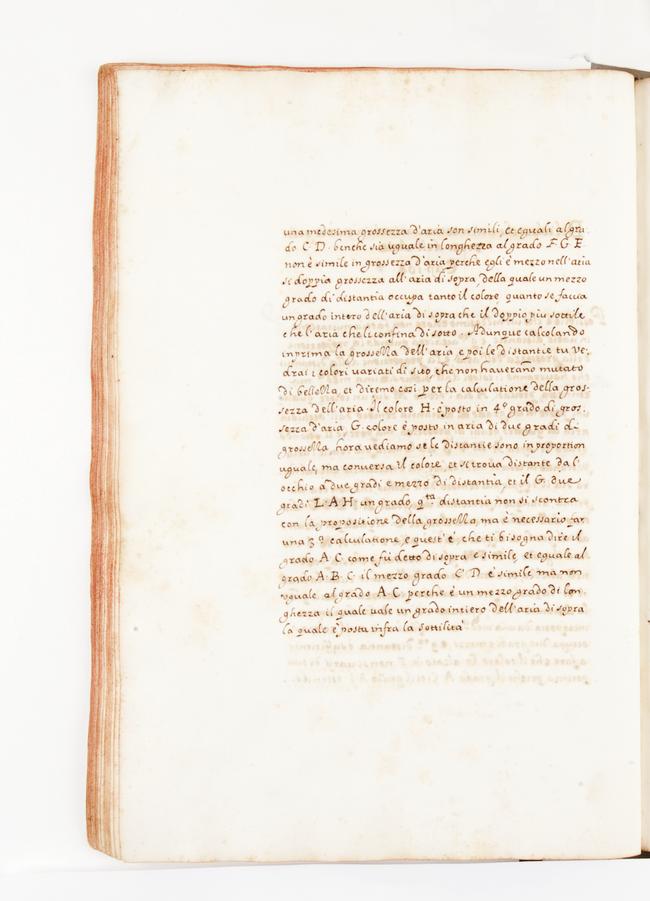 una medesima grossezza d'aria son simili, et eguali al gra-
do C. D. benche sia uguale in longhezza al grado F G E
non è simile in grossezza d'aria perche egli è mezzo nell'aria
di doppia grossezza all'aria di sopra, della quale un mezzo
grado di distantia occupa tanto il colore, quanto se facia
un grado intero dell'aria di sopra che il doppio piu sottile
che l'aria che li confina di sotto. Adunque calcolando
inprima la grossezza dell'aria e poi le distantie tu ve-
drai i colori variati di sito, che non haverano mutato
di bellezza, et diremo cosi per la calculatione della gros-
sezza dell'aria. Il colore H. è posto in 4.º grado di gros-
sezza d'aria G. colore è posto in aria di due gradi di
grossezza, hora vediamo se le distantie sono in proportion
uguale, ma conversa il colore et si trova distante dal
occhio a due gradi e mezzo di distantia, et il G. due
gradi L. A H un grado, q.ta distantia non si scontra
con la propositione della grossezza, ma è necessario far
una 3.ª calculatione, e quest'è che ti bisogna dire il
grado A. C. come fú detto di sopra è simile, et eguale al
grado A. B. C. il mezzo grado C D. è simile, ma non
uguale al grado A. C. perche è un mezzo grado di lon
ghezza il quale vale un grado intiero dell'aria di sopra
la quale è posta
la sottilità